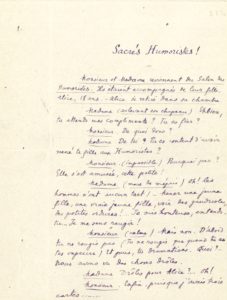 Sacrés Humoristes !
Monsieur et Madame reviennent du Salon des
Humoristes. Ils étaient accompagnés de leur fille
Alice, 18 ans. Alice se retire dans sa chambre
Madame (enlevant son chapeau)
tu attends mes compliments ? Tu es fier ?
Monsieur. De quoi donc ?
Madame. De te Tu es content d'avoir
mené ta fille aux Humoristes ?
Monsieur (impassible) Pourquoi pas ?
Elle s'est amusée, cette petite !
Madame. Oh ! les
hommes n'ont aucun tact ! Mener une jeune
fille, une vraie jeune fille, voir des
des petites ordures ! Tu es honteux, entends-
tu. Tu me fais rougir !
Monsieur (calme) Mais non. D'abord
tu ne rougis pas (Tu ne rougis que quand tu as
tes vapeurs) Et puis, tu dramatises. Quoi ?
Nous avons vu des choses drôles
Madame Drôles pour Alice ?.. Oh !
Monsieur. Enfin, puisque j'avais trois
cartes